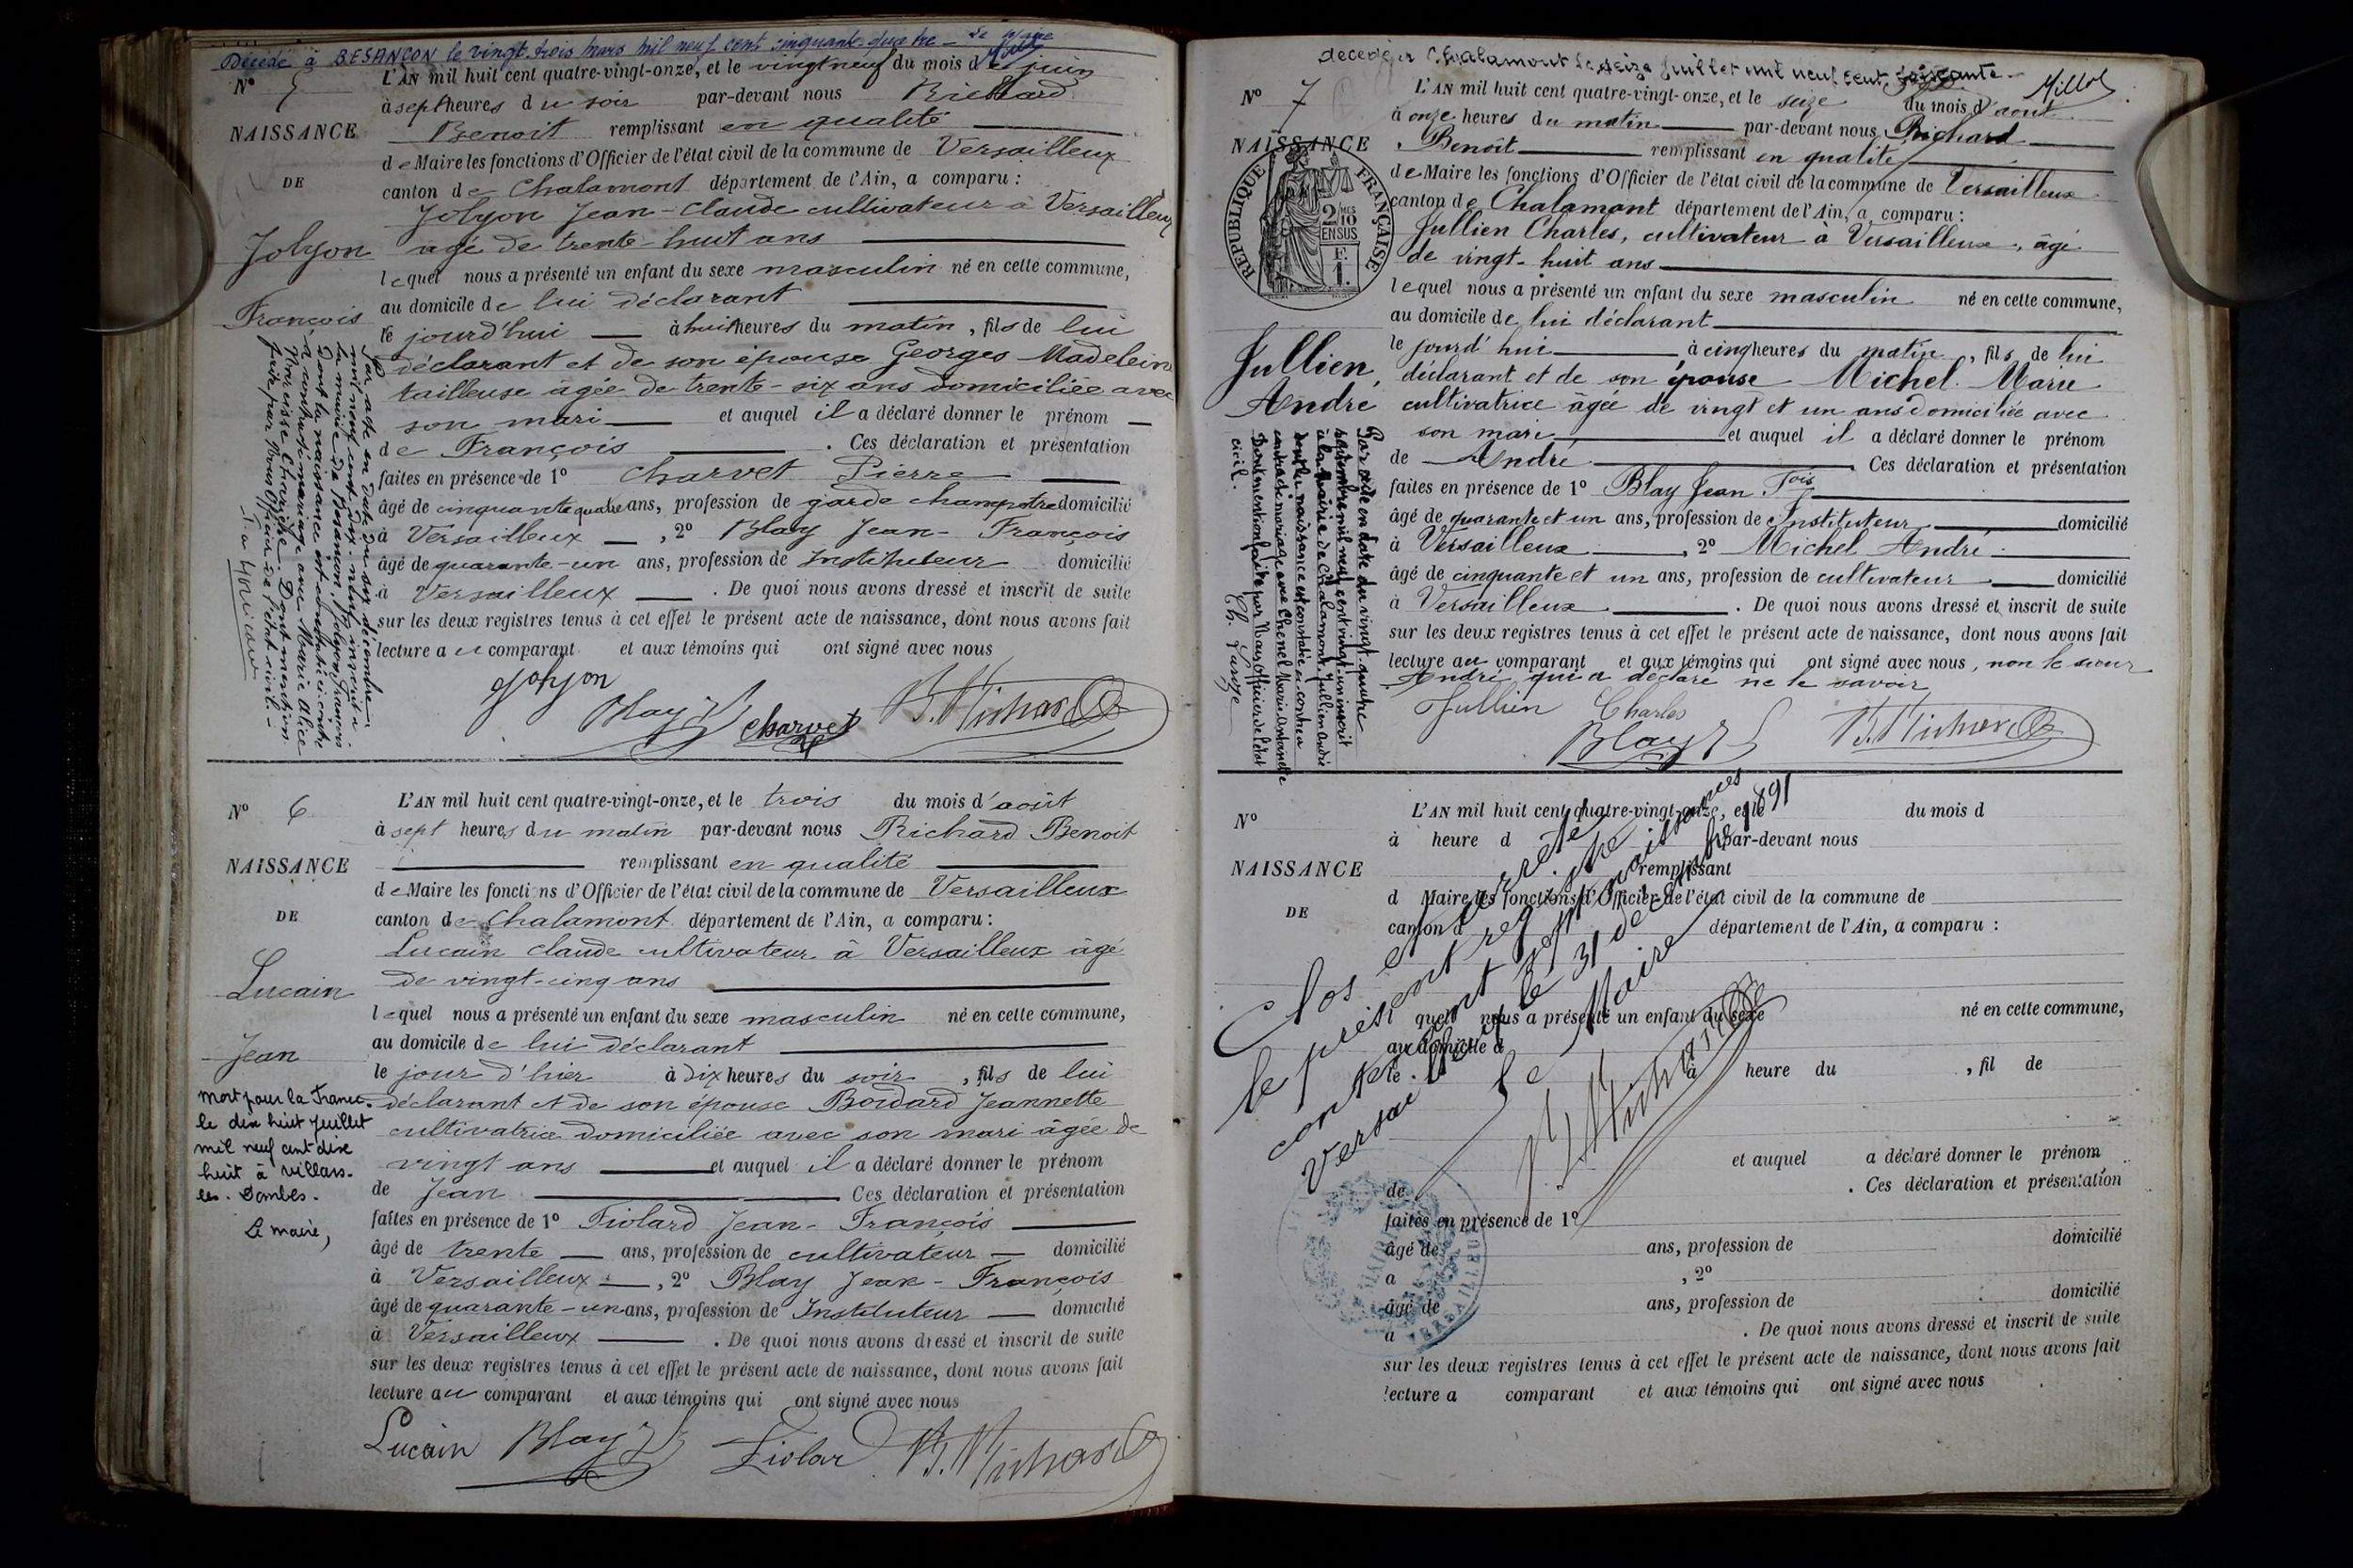 Décédé à BESANÇON le vingt trois mars mil neuf cent cinquante quatre - le Maire
N° 5
L'AN mil huit cent quatre-vingt-onze, et le vingt neuf du mois de juin
à sept heures du soir par-devant nous Richard
NAISSANCE
Benoit remplissant en qualité
de Maire les fonctions d'Officier de l'état civil de la commune de Versailleux
DE
canton de Chalamont département de l'Ain, a comparu :
Jolyon Jean-Claude cultivateur à Versailleux
Jolyon
âgé de trente-huit ans
lequel nous a présenté un enfant du sexe masculin né en cette commune,
François
au domicile de lui déclarant
le jourd'hui à huit heures du matin, fils de lui
déclarant et de son épouse Georges Madeleine
tailleuse âgée de trente-six ans domiciliée avec
son mari et auquel il a déclaré donner le prénom
de François. Ces déclaration et présentation
faites en présence de 1° Charvet Pierre
âgé de cinquante quatre ans, profession de garde champêtre domicilié
à Versailleux, 2° Blay Jean-François
âgé de quarante-un ans, profession de Instituteur domicilié
à Versailleux. De quoi nous avons dressé et inscrit de suite
sur les deux registres tenus à cet effet le présent acte de naissance, dont nous avons fait
lecture au comparant et aux témoins qui ont signé avec nous
Par acte en date du six décembre
mil neuf cent dix-neuf inscrit à
la mairie de Besançon, Jolyon François
dont la naissance est constatée ci-contre
a contracté mariage avec Marie Alice
Narcisse . Dont mention
faite par Nous Officier de l'état civil.-
Jolyon
Blay Charvet B. Richard
N° 6
L'AN mil huit cent quatre-vingt-onze, et le trois du mois d'août
à sept heures du matin par-devant nous Richard Benoit
NAISSANCE
remplissant en qualité
de Maire les fonctions d'Officier de l'état civil de la commune de Versailleux
DE
canton de Chalamont département de l'Ain, a comparu :
Lucain Claude cultivateur à Versailleux âgé
Lucain
de vingt-cinq ans
lequel nous a présenté un enfant du sexe masculin né en cette commune,
au domicile de lui déclarant
Jean
le jour d'hier à dix heures du soir, fils de lui
déclarant et de son épouse Bordard Jeannette
cultivatrice domiciliée avec son mari âgée de
vingt ans et auquel il a déclaré donner le prénom
de Jean Ces déclaration et présentation
faites en présence de 1° Fiolard Jean-François
âgé de trente ans, profession de cultivateur domicilié
à Versailleux, 2° Blay Jean-François
âgé de quarante-un ans, profession de Instituteur domicilié
à Versailleux. De quoi nous avons dressé et inscrit de suite
sur les deux registres tenus à cet effet le présent acte de naissance, dont nous avons fait
lecture au comparant et aux témoins qui ont signé avec nous
Mort pour la France
le dix huit Juillet
mil neuf cent dix
huit à Villars-
les-Dombes.
Le maire,
Lucain Blay Fiolar B. Richard
décédé à Chalamont le seize Juillet mil neuf cent soixante.- Millot
N° 7
L'AN mil huit cent quatre-vingt-onze, et le seize du mois d'aout
à onze heures du matin par-devant nous Richard
NAISSANCE
Benoît remplissant en qualité
de Maire les fonctions d'Officier de l'état civil de la commune de Versailleux
RÉPUBLIQUE FRANÇAISE
2/10 MES EN SUS
F. 1.
canton de Chalamont département de l'Ain, a comparu :
Jullien Charles, cultivateur à Versailleux, âgé
de vingt-huit ans
lequel nous a présenté un enfant du sexe masculin né en cette commune,
au domicile de lui déclarant
Jullien,
le jourd'hui à cinq heures du matin, fils de lui
déclarant et de son épouse Michel Marie
André
cultivatrice âgée de vingt et un ans domiciliée avec
son mari et auquel il a déclaré donner le prénom
de André Ces déclaration et présentation
faites en présence de 1° Blay Jean Fois
âgé de quarante et un ans, profession de Instituteur domicilié
à Versailleux, 2° Michel André
âgé de cinquante et un ans, profession de cultivateur domicilié
à Versailleux. De quoi nous avons dressé et inscrit de suite
sur les deux registres tenus à cet effet le présent acte de naissance, dont nous avons fait
lecture au comparant et aux témoins qui ont signé avec nous, non le sieur
André qui a déclaré ne le savoir
Par acte en date du vingt-quatre
septembre mil neuf cent vingt-un inscrit
à la Mairie de Chalamont, Jullien André
dont la naissance est constatée ci-contre a
contracté mariage avec Chenel Marie Antoinette
Dont mention faite par Nous Officier de l'état
civil.
Jullien Charles
Blay B. Richard
N°
L'AN mil huit cent quatre-vingt-onze, et le du mois d
à heure d par-devant nous
NAISSANCE
remplissant
d Maire les fonctions d'Officier de l'état civil de la commune de
DE
canton d département de l'Ain, a comparu :
l quel nous a présenté un enfant du sexe né en cette commune,
au domicile d
le à heure du , fil de
et auquel a déclaré donner le prénom
de . Ces déclaration et présentation
faites en présence de 1°
âgé de ans, profession de domicilié
à , 2°
âgé de ans, profession de domicilié
à . De quoi nous avons dressé et inscrit de suite
sur les deux registres tenus à cet effet le présent acte de naissance, dont nous avons fait
lecture a comparant et aux témoins qui ont signé avec nous
Clos et arrêté
le présent registre
contenant sept naissances
Versailleux le 31 décembre 1891
Le Maire
B. Richard
MAIRIE
VERSAILLEUX